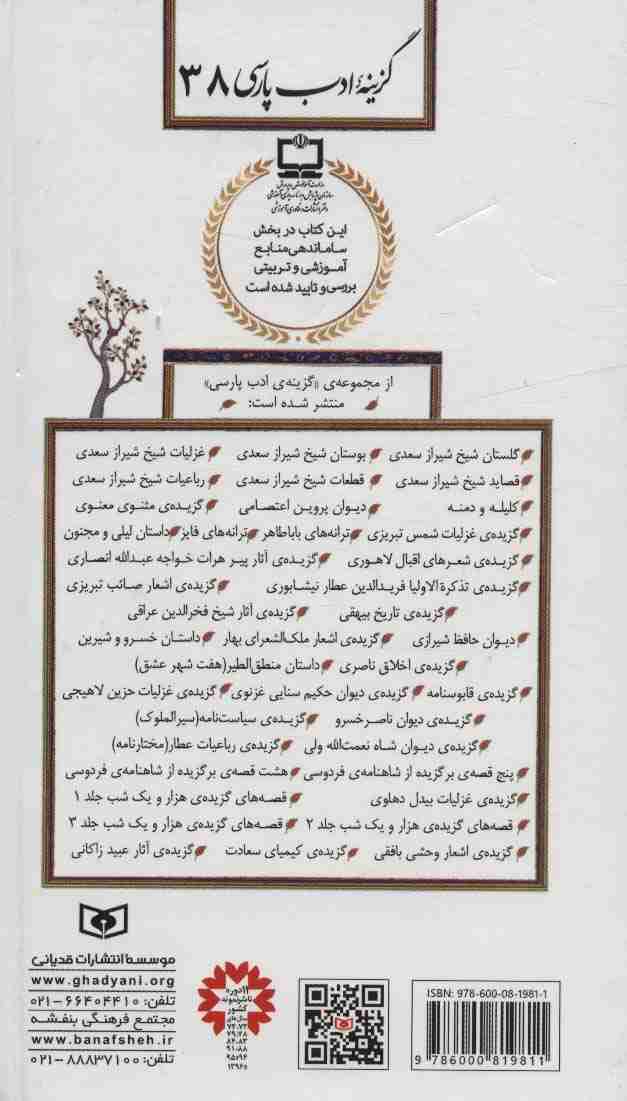 گزینهٔ ادب پارسی ۳۸
وزارت آموزش و پرورش
سازمان پژوهش و برنامه‌ریزی آموزشی
دفتر انتشارات و فناوری آموزشی
این کتاب در بخش
ساماندهی منابع
آموزشی و تربیتی
بررسی و تایید شده است
از مجموعه‌ی «گزینه‌ی ادب پارسی»
منتشر شده است:
گلستان شیخ شیراز سعدی بوستان شیخ شیراز سعدی غزلیات شیخ شیراز سعدی
قصاید شیخ شیراز سعدی قطعات شیخ شیراز سعدی رباعیات شیخ شیراز سعدی
کلیله و دمنه دیوان پروین اعتصامی گزیده‌ی مثنوی معنوی
گزیده‌ی غزلیات شمس تبریزی ترانه‌های باباطاهر ترانه‌های فایز داستان لیلی و مجنون
گزیده‌ی شعرهای اقبال لاهوری گزیده‌ی آثار پیر هرات خواجه عبدالله انصاری
گزیده‌ی تذکرة الاولیا فریدالدین عطار نیشابوری گزیده‌ی اشعار صائب تبریزی
گزیده‌ی تاریخ بیهقی گزیده‌ی آثار شیخ فخرالدین عراقی
دیوان حافظ شیرازی گزیده‌ی اشعار ملک‌الشعرای بهار داستان خسرو و شیرین
گزیده‌ی اخلاق ناصری داستان منطق‌الطیر(هفت شهر عشق)
گزیده‌ی قابوسنامه گزیده‌ی دیوان حکیم سنایی غزنوی گزیده‌ی غزلیات حزین لاهیجی
گزیده‌ی دیوان ناصرخسرو گزیده‌ی سیاست‌نامه(سیرالملوک)
گزیده‌ی دیوان شاه نعمت‌الله ولی گزیده‌ی رباعیات عطار(مختارنامه)
پنج قصه‌ی برگزیده از شاهنامه‌ی فردوسی هشت قصه‌ی برگزیده از شاهنامه‌ی فردوسی
گزیده‌ی غزلیات بیدل دهلوی قصه‌های گزیده‌ی هزار و یک شب جلد ۱
قصه‌های گزیده‌ی هزار و یک شب جلد ۲ قصه‌های گزیده‌ی هزار و یک شب جلد ۳
گزیده‌ی اشعار وحشی بافقی گزیده‌ی کیمیای سعادت گزیده‌ی آثار عبید زاکانی
موسسه انتشارات قدیانی
www.ghadyani.org
تلفن: ۶۶۴۰۴۴۱۰-۰۲۱
مجتمع فرهنگی بنفشه
www.banafsheh.ir
تلفن: ۸۸۸۳۷۱۰۰-۰۲۱
۱۲ دوره
ناشر نمونه
کشور
سال‌های
ISBN: 978-600-08-1981-1
9 786000 819811